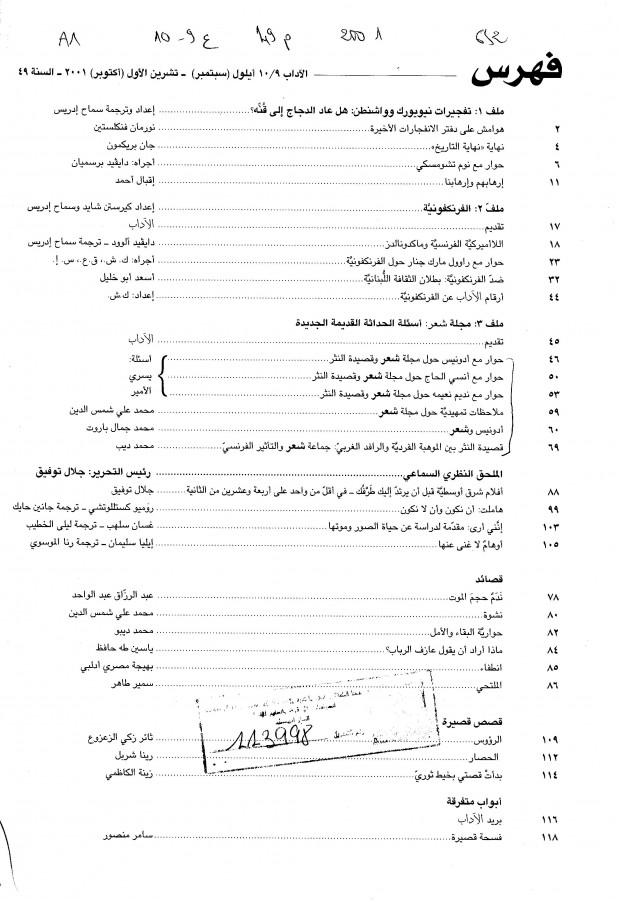 A1 10-9 ع 49 م 2001
فهرس
الآداب ١٠/٩ أيلول (سبتمبر) ـ تشرين الأول (أكتوبر) ٢٠٠١ ـ السنة ٤٩
ملف ١: تفجيرات نيويورك وواشنطن: هل عاد الدجاج إلى قُنِّه؟ إعداد وترجمة سماح إدريس
هوامش على دفتر الانفجارات الأخيرة نورمان فنكلستين ٢
نهاية «نهاية التاريخ» جان بريكمون ٤
حوار مع نوم تشومسكي أجراه: دايڤيد برسميان ٦
إرهابهم وإرهابنا إقبال أحمد ١١
ملف ٢: الفرنكفونيَّة إعداد كيرستن شايد وسماح إدريس
تقديم الآداب ١٧
اللاأميركيَّة الفرنسيَّة وماكدونالدز دايڤيد آلوود ـ ترجمة سماح إدريس ١٨
حوار مع راوول مارك جنار حول الفرنكفونيَّة أجراه: ك. ش.، ق.ع.، س. إ. ٢٣
ضدّ الفرنكفونيَّة: بطلان الثقافة اللُّبنانيَّة أسعد أبو خليل ٣٢
أرقام الآداب عن الفرنكفونيَّة إعداد: ك.ش. ٤٤
ملف ٣: مجلة شعر: أسئلة الحداثة القديمة الجديدة
تقديم الآداب ٤٥
حوار مع أدونيس حول مجلة شعر وقصيدة النثر أسئلة: ٤٦
حوار مع أنسي الحاج حول مجلة شعر وقصيدة النثر يسري ٥٠
حوار مع نديم نعيمه حول مجلة شعر وقصيدة النثر الأمير ٥٣
ملاحظات تمهيديَّة حول مجلة شعر محمد علي شمس الدين ٥٩
أدونيس وشعر محمد جمال باروت ٦٠
قصيدة النثر بين الموهبة الفرديَّة والرافد الغربيّ: جماعة شعر والتأثير الفرنسيّ محمد ديب ٦٩
الملحق النظري السماعي رئيس التحرير: جلال توفيق
أفلام شرق أوسطيَّة قبل أن يرتدّ إليك طَرْفُك ـ في أقلّ من واحد على أربعة وعشرين من الثانية جلال توفيق ٨٨
هاملت: أن نكون وأن لا نكون روميو كستللوتشي ـ ترجمة جانين حايك ٩٩
إنَّني أرى: مقدّمة لدراسة عن حياة الصور وموتها غسان سلهب ـ ترجمة ليلى الخطيب ١٠٣
أوهامٌ لا غنى عنها إيليا سليمان ـ ترجمة رنا الموسوي ١٠٥
قصائد
نَدَمٌ حجمَ الموت عبد الرزّاق عبد الواحد ٧٨
نشوة محمد علي شمس الدين ٨٠
حواريَّة البقاء والأمل محمد ديبو ٨٢
ماذا أراد أن يقول عازف الرباب؟ ياسين طه حافظ ٨٤
انطفاء بهيجة مصري أدلبي ٨٥
الملتحي سمير طاهر ٨٦
113998
قصص قصيرة
الرؤوس ثائر زكي الزعزوع ١٠٩
الحصار رينا شربل ١١٢
بدأتْ قصتي بخيط ثوريّ زينة الكاظمي ١١٤
أبواب متفرقة
بريد الآداب ١١٦
فسحة قصيرة سامر منصور ١١٨